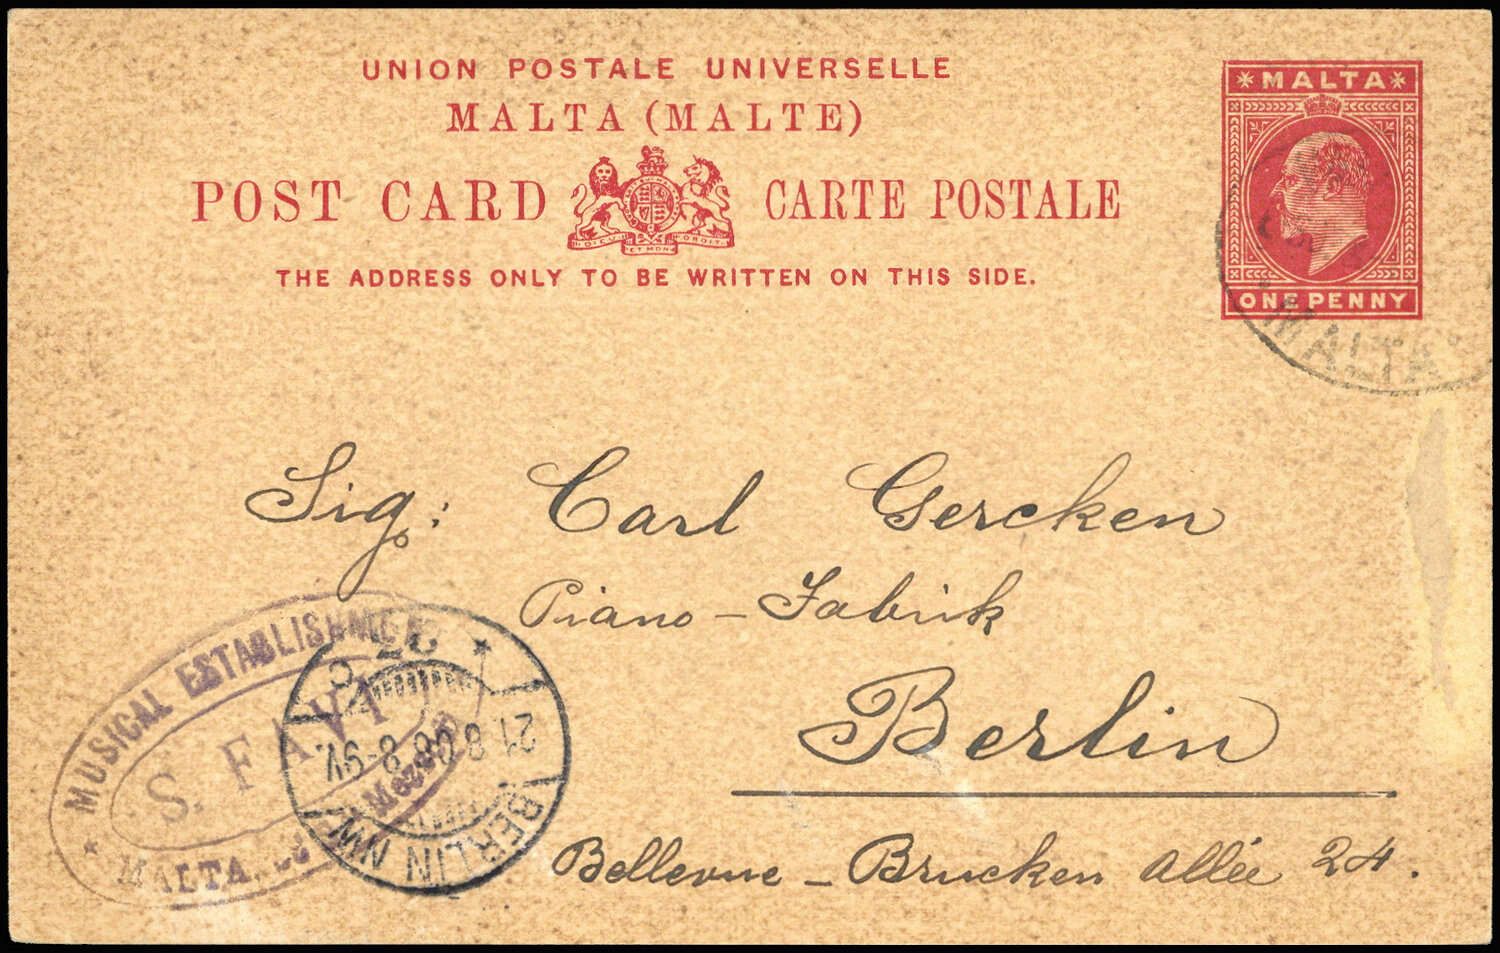 UNION POSTALE UNIVERSELLE
MALTA (MALTE)
POST CARD CARTE POSTALE
THE ADDRESS ONLY TO BE WRITTEN ON THIS SIDE.
MALTA
ONE PENNY
MALTA
Sig: Carl Gercken
Piano - Fabrik
Berlin
Bellevue - Brucken Allée 24.
MUSICAL ESTABLISHMENT
S. FAVI
MALTA.
BERLIN NW
21 8 08 8-9V.